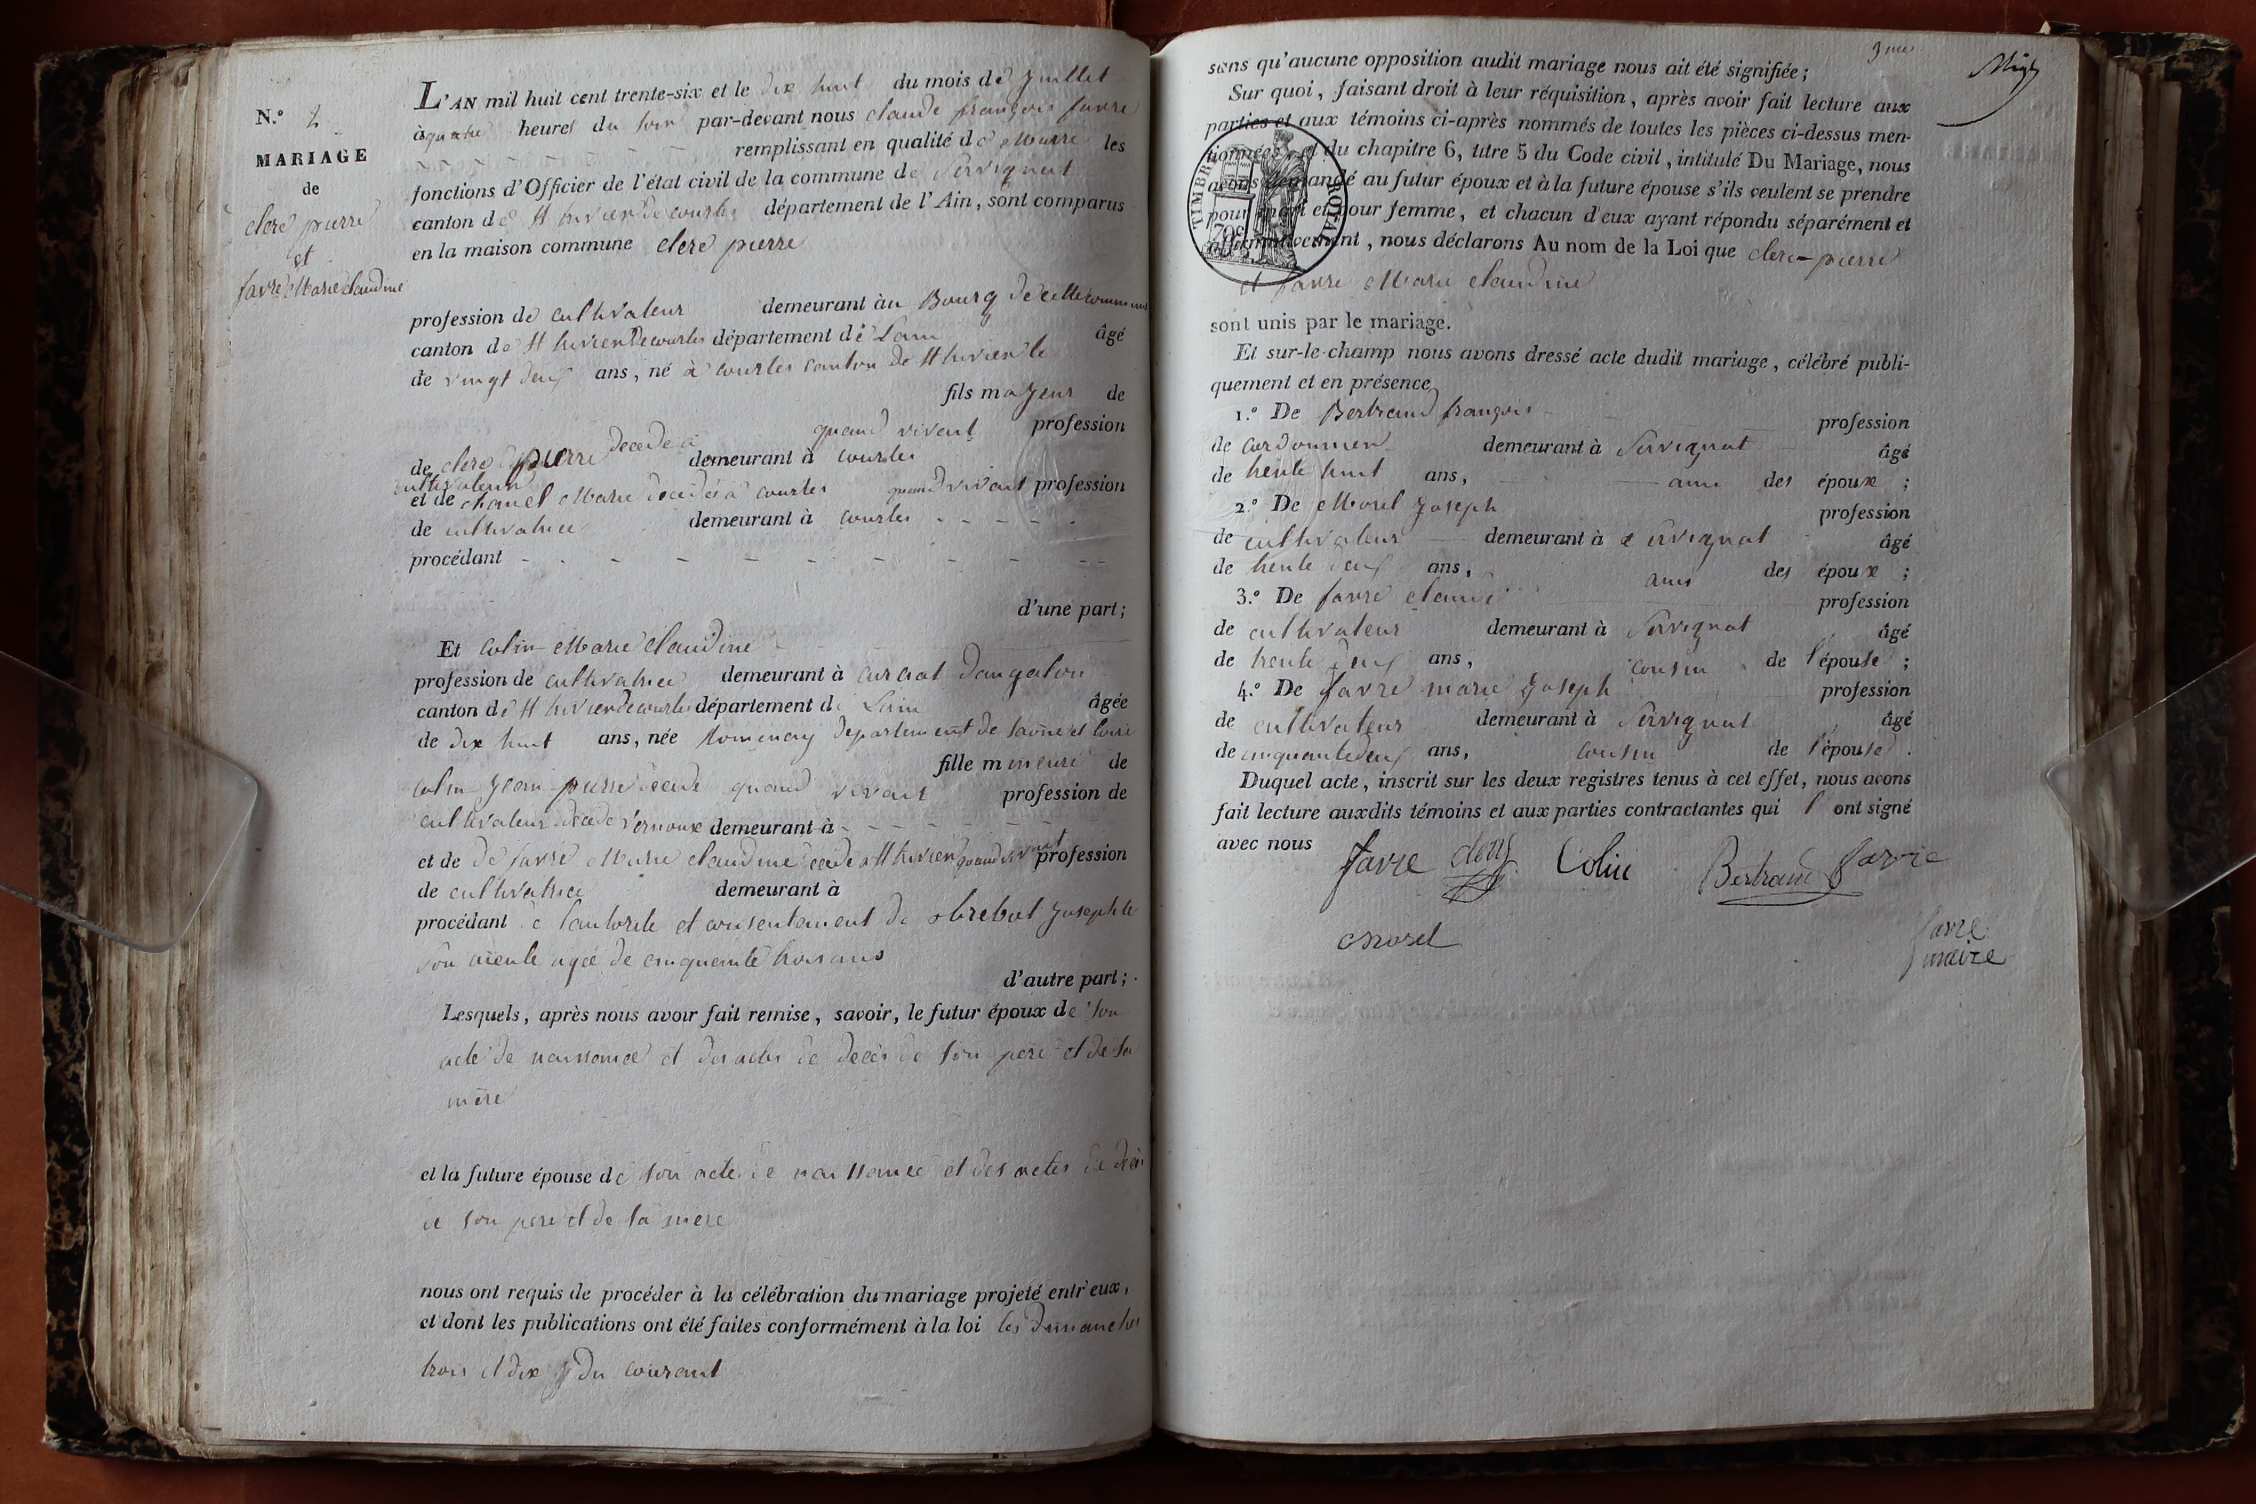 N.º 2
MARIAGE
de
clerc pierre
et
favre Marie claudine
L'AN mil huit cent trente-six et le dix huit du mois de Juillet
à quatre heures du soir par-devant nous claude françois favre
remplissant en qualité de Maire les
fonctions d'Officier de l'état civil de la commune de Servignat
canton de St trivier de courtes département de l'Ain, sont comparus
en la maison commune clerc pierre
profession de cultivateur demeurant au Bourg de cette commune
canton de St trivier de courtes département de Lain âgé
de vingt deux ans, né à courtes canton de St trivier le
fils majeur de
quand vivait profession
de clerc pierre decede a demeurant à courtes
cultivateur
et de Marie decedé a courtes quand vivait profession
de cultivatrice demeurant à courtes
procédant
d'une part;
Et colin Marie claudine
profession de cultivatrice demeurant à curciat dongalon
canton de St trivier de courtes département de Lain âgée
de dix huit ans, née Romenay departement de saone et loire
fille mineure de
colin Jean pierre decede quand vivait profession de
cultivateur decede vernoux demeurant à
et de de favre Marie claudine decede a St trivier quand vivait profession
de cultivatrice demeurant à
procédant de lautorite et consentement de Josephte
son aieule agée de cinquante trois ans
d'autre part;
Lesquels, après nous avoir fait remise, savoir, le futur époux de son
acte de naissance et des actes de décès de son pere et de sa
mère
et la future épouse de son acte de naissance et des actes de décès
de son pere et de sa mere
nous ont requis de procéder à la célébration du mariage projeté entr'eux,
et dont les publications ont été faites conformément à la loi les dimanches
trois et dix du courant
3me
sans qu'aucune opposition audit mariage nous ait été signifiée;
Sur quoi, faisant droit à leur réquisition, après avoir fait lecture aux
parties et aux témoins ci-après nommés de toutes les pièces ci-dessus men-
tionnées, et du chapitre 6, titre 5 du Code civil, intitulé Du Mariage, nous
avons demandé au futur époux et à la future épouse s'ils veulent se prendre
pour mari et pour femme, et chacun d'eux ayant répondu séparément et
affirmativement, nous déclarons Au nom de la Loi que clerc pierre
TIMBRE ROYAL
70c
et favre Marie claudine
sont unis par le mariage.
Et sur-le-champ nous avons dressé acte dudit mariage, célébré publi-
quement et en présence
1.º De Bertrand françois profession
de cordonnier demeurant à Servignat âgé
de trente huit ans, ami des époux ;
2.º De Morel Joseph profession
de cultivateur demeurant à servignat âgé
de trente deux ans, amis des époux ;
3.º De favre claude profession
de cultivateur demeurant à Servignat âgé
de trente deux ans, cousin de l'épouse ;
4.º De favre marie Joseph profession
de cultivateur demeurant à Servignat âgé
de cinquante deux ans, cousin de l'épouse.
Duquel acte, inscrit sur les deux registres tenus à cet effet, nous avons
fait lecture auxdits témoins et aux parties contractantes qui l'ont signé
avec nous
favre Colin Bertrand favre
morel
favre
maire